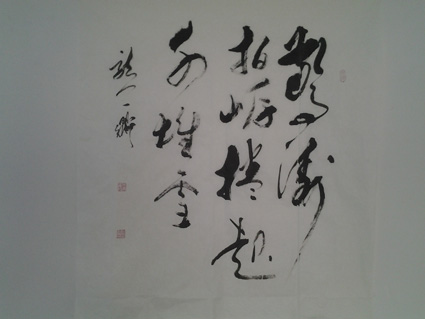 驚濤
拍岸捲起
千堆雪